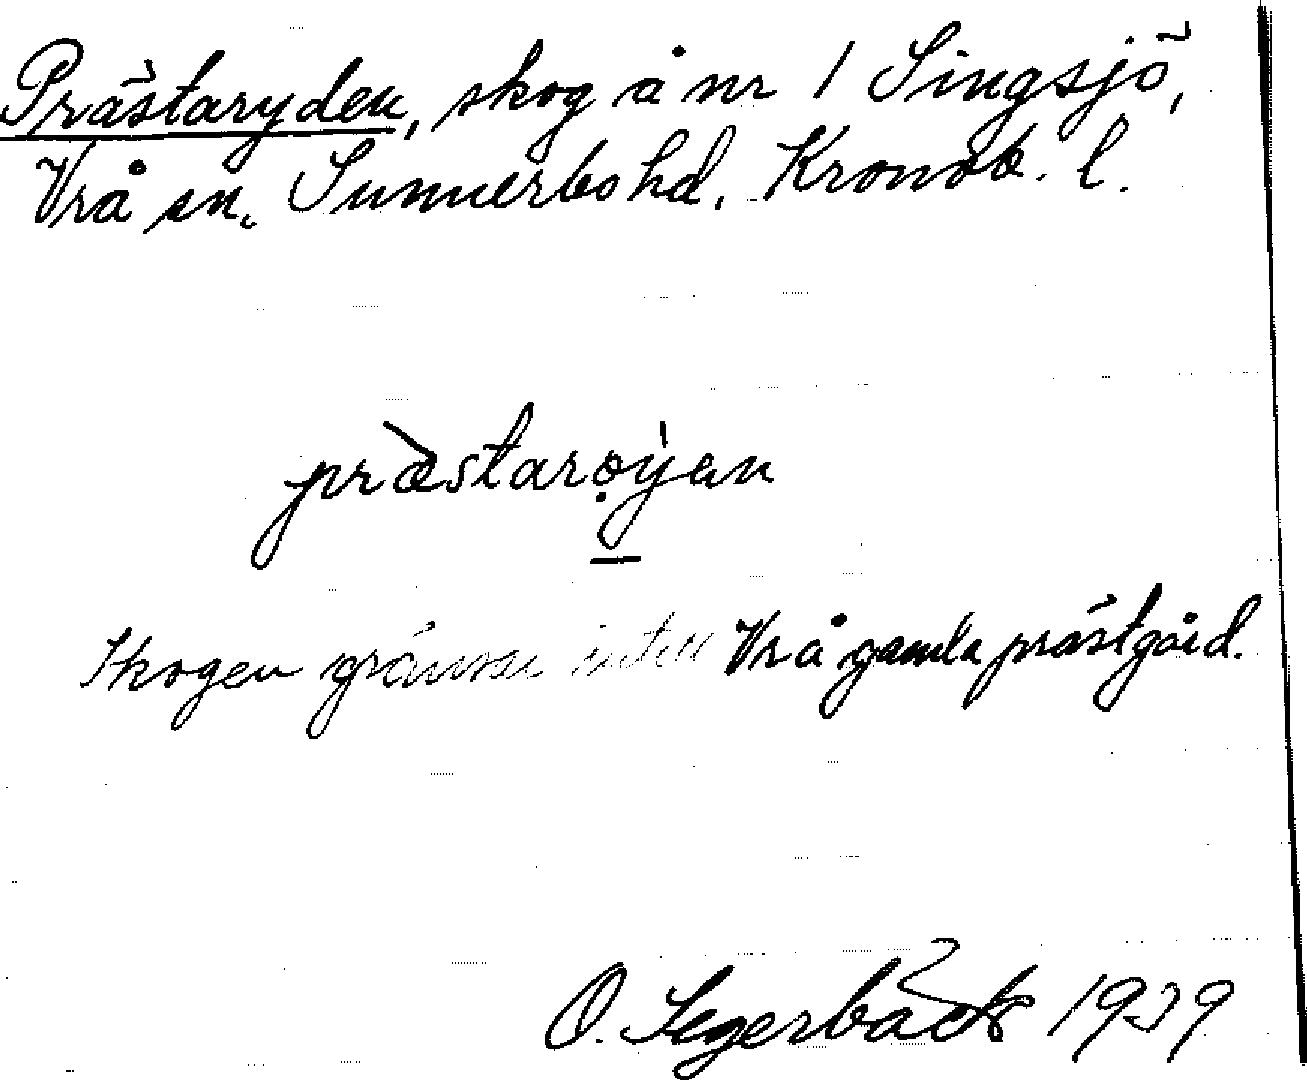 Prästaryden, skog å nr 1 Singsjö,
Vrå sn. Sunnerbo hd. Kronob. l.
præ̀starọýan
Skogen gränsar intill Vrå gamla prästgård.
O. Segerbäck 1939